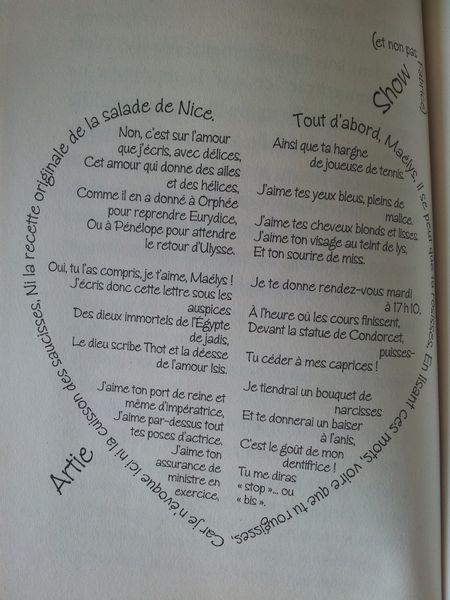 Tout d'abord, Maëlys, il se peut que tu rosisses, En lisant ces mots, voire que tu rougisses,
Car je n'évoque ici ni la cuisson des saucisses, Ni la recette originale de la salade de Nice.
Non, c'est sur l'amour
que j'écris, avec délices,
Cet amour qui donne des ailes
et des hélices,
Comme il en a donné à Orphée
pour reprendre Eurydice,
Ou à Pénélope pour attendre
le retour d'Ulysse.
Oui, tu l'as compris, je t'aime, Maëlys !
J'écris donc cette lettre sous les
auspices
Des dieux immortels de l'Égypte
de jadis,
Le dieu scribe Thot et la déesse
de l'amour Isis.
J'aime ton port de reine et
même d'impératrice,
J'aime par-dessus tout
tes poses d'actrice.
J'aime ton
assurance de
ministre en
exercice,
Ainsi que ta hargne
de joueuse de tennis.
J'aime tes yeux bleus, pleins de
malice.
J'aime tes cheveux blonds et lisses.
J'aime ton visage au teint de lys,
Et ton sourire de miss.
Je te donne rendez-vous mardi
à 17h10,
À l'heure où les cours finissent,
Devant la statue de Condorcet,
puisses-
Tu céder à mes caprices !
Je tiendrai un bouquet de
narcisses
Et te donnerai un baiser
à l'anis,
C'est le goût de mon
dentifrice !
Tu me diras
« stop »... ou
« bis ».
Artie
Show
(et non pas Fabrice)